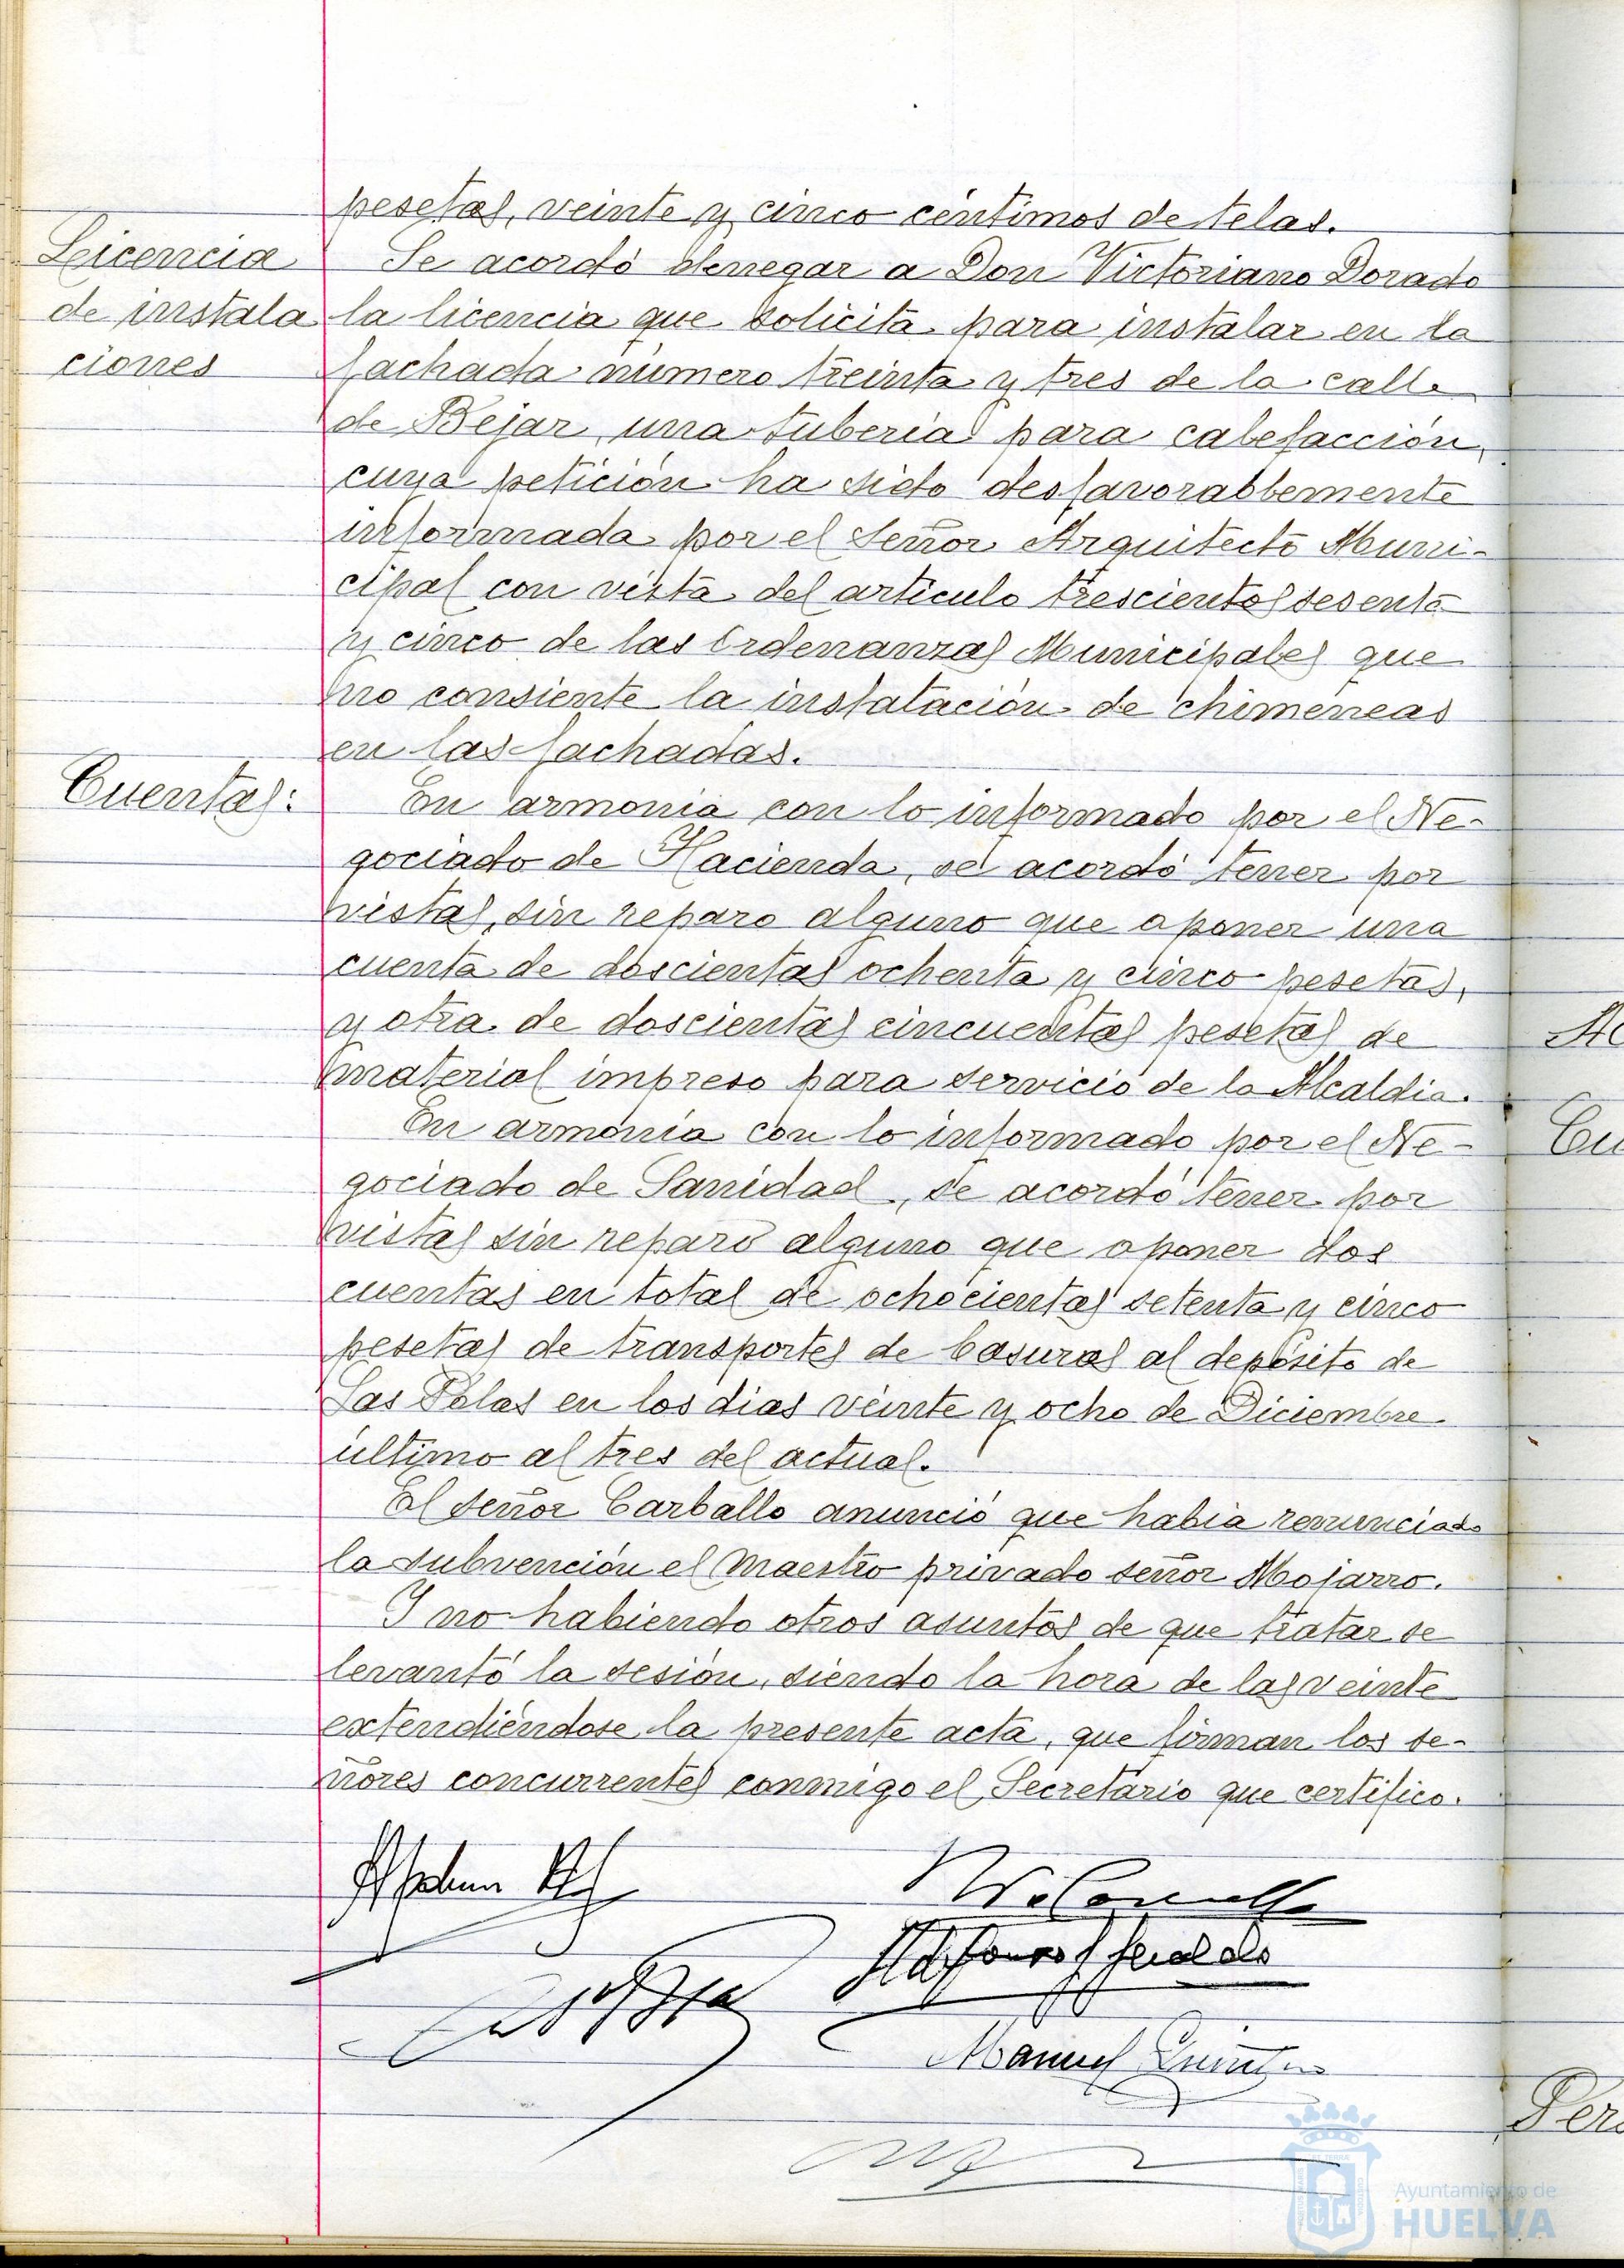 pesetas, veinte y cinco céntimos de telas.
Licencia
de instala
ciones
Se acordó denegar a Don Victoriano Dorado
la licencia que solicita para instalar en la
fachada número treinta y tres de la calle
de Bejar, una tubería para calefacción,
cuya petición ha sido desfavorablemente
informada por el Señor Arquitecto Muni-
cipal con vista del artículo trescientos sesenta
y cinco de las Ordenanzas Municipales que
no consiente la instalación de chimeneas
en las fachadas.
Cuentas:
En armonía con lo informado por el Ne-
gociado de Hacienda, se acordó tener por
vistas, sin reparo alguno que oponer una
cuenta de doscientas ochenta y cinco pesetas,
y otra de doscientas cincuentas pesetas de
material impreso para servicio de la Alcaldia.
En armonía con lo informado por el Ne-
gociado de Sanidad, se acordó tener por
vistas sin reparo alguno que oponer dos
cuentas en total de ochocientas setenta y cinco
pesetas de transportes de basuras al depósito de
Las Palas en los dias veinte y ocho de Diciembre
último al tres del actual.
El señor Carballo anunció que habia renunciado
la subvención el maestro privado señor Mojarro.
Y no habiendo otros asuntos de que tratar se
levantó la sesión, siendo la hora de las veinte
extendiéndose la presente acta, que firman los se-
ñores concurrentes conmigo el Secretario que certifico.
Manuel
Ayuntamiento de
HUELVA